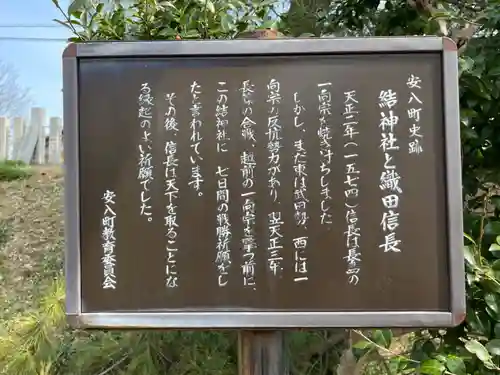 安八町史跡
結神社と織田信長
天正二年（一五七四）信長は長島の
一向宗を焼き討ちしました。
しかし、まだ東は武田勢、西には一
向宗の反抗勢力があり、翌天正三年、
長篠の合戦、越前の一向宗を撃つ前に、
この結神社に 七日間の戦勝祈願をし
たと言われています。
その後、信長は天下を取ることにな
る縁起のよい祈願でした。
安八町教育委員会